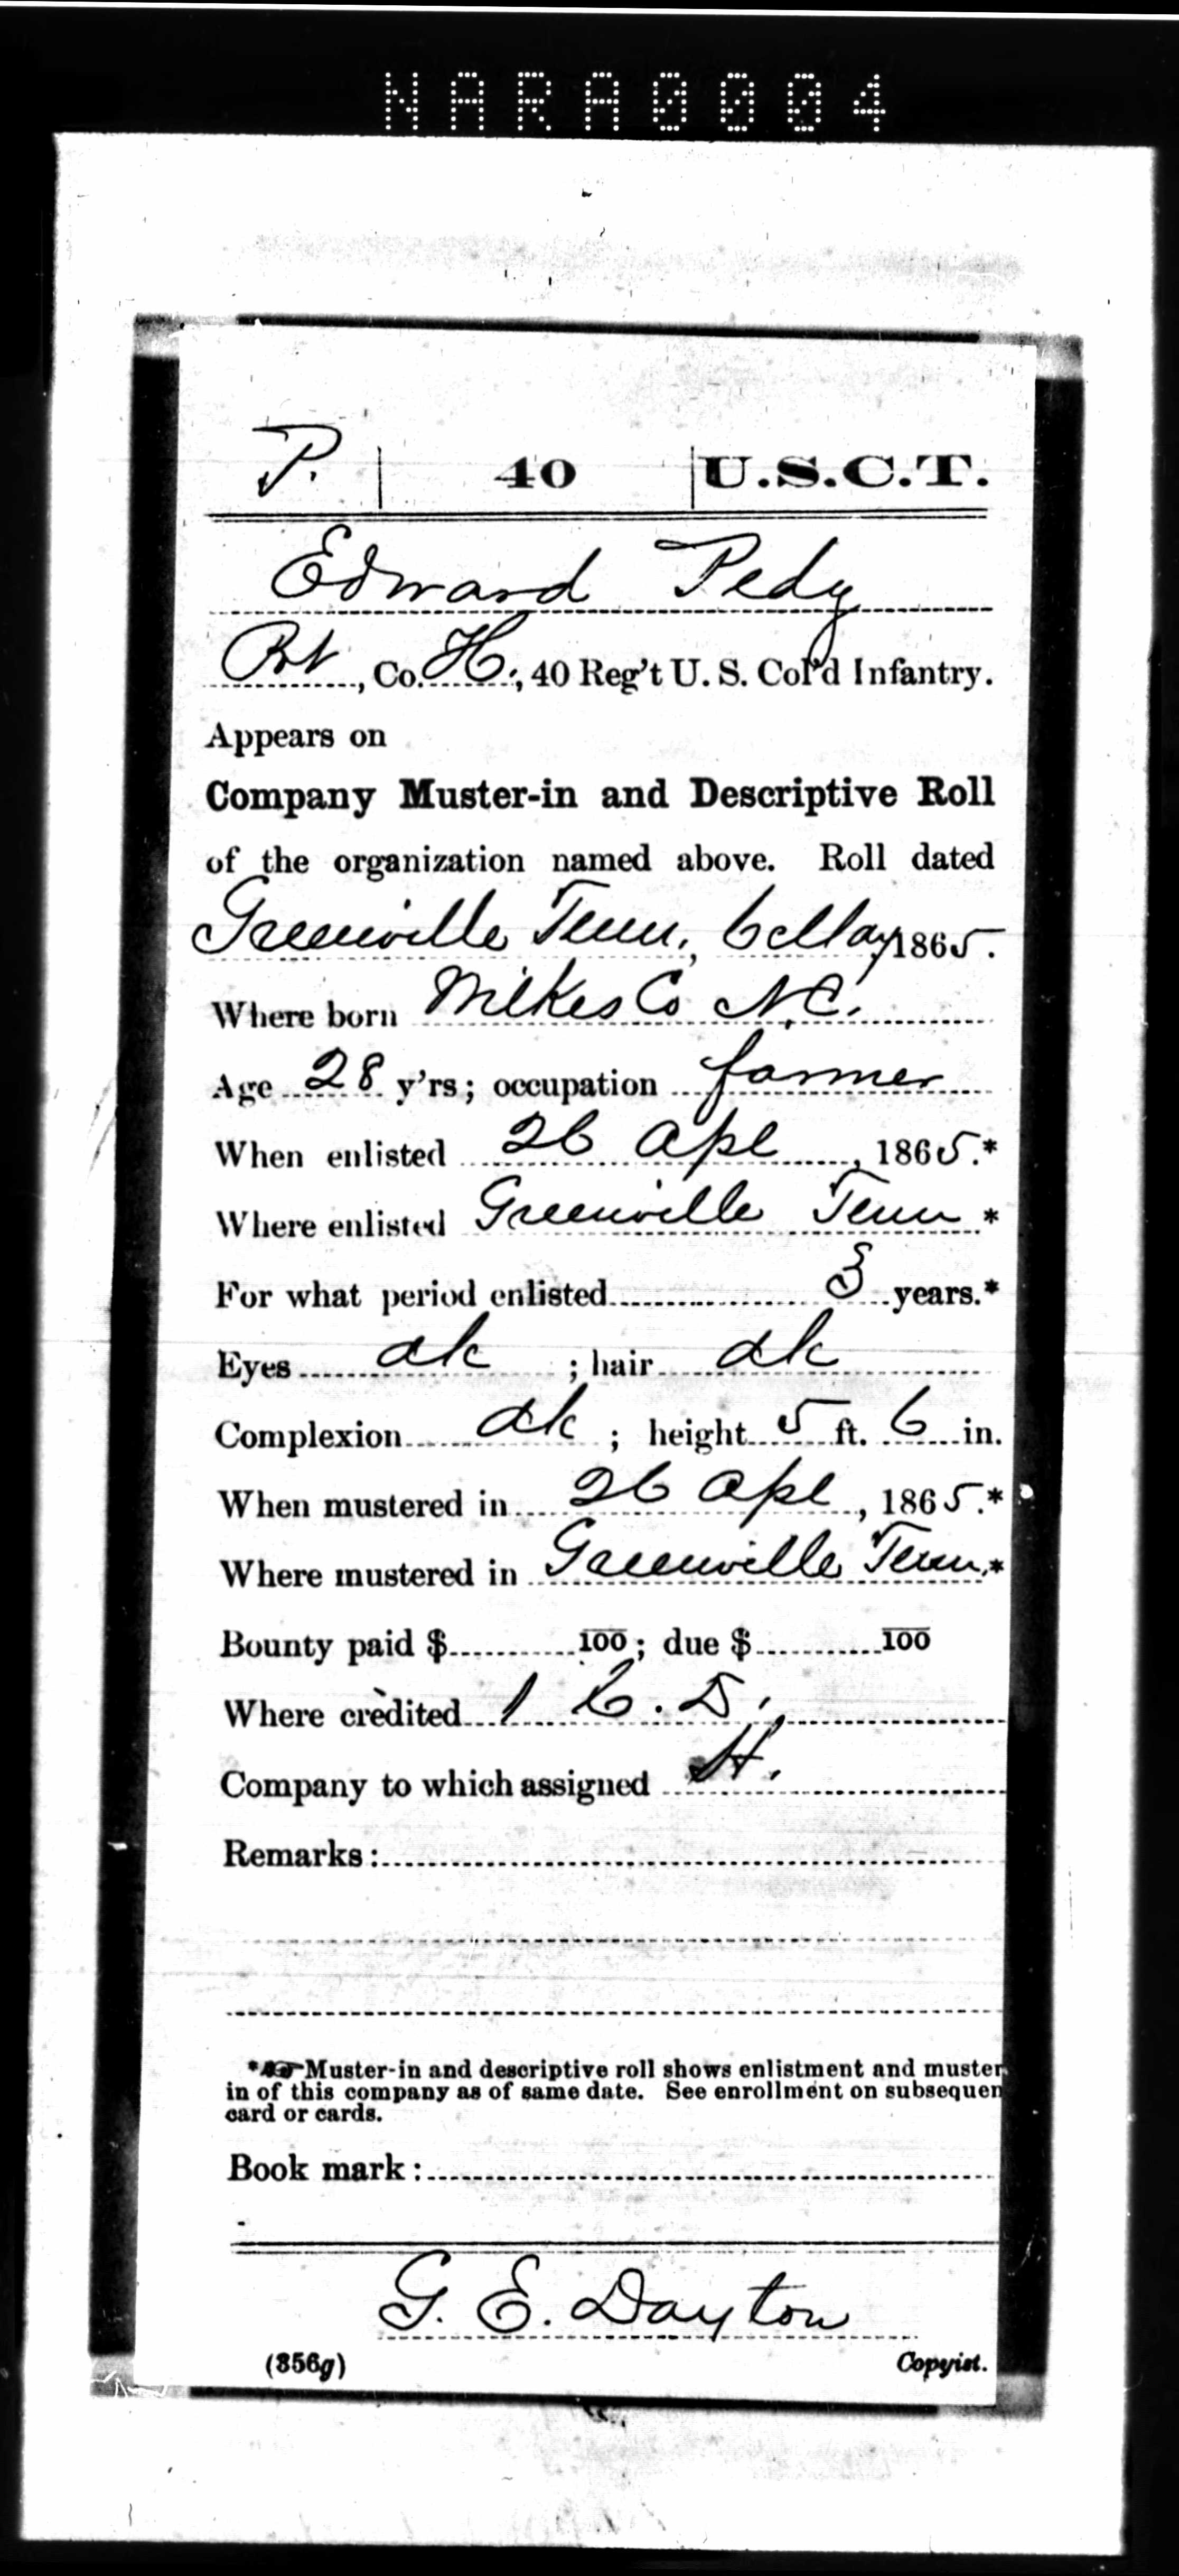 NARA0004
P. | 40 | U.S.C.T.
Edward Pedy
Pvt, Co. H., 40 Reg't U. S. Col'd Infantry.
Appears on
Company Muster-in and Descriptive Roll
of the organization named above. Roll dated
Greenville Tenn., 6 May, 1865.
Where born Wilkes Co N.C.
Age 28 y'rs; occupation farmer
When enlisted 26 Apl, 1865.*
Where enlisted Greenville Tenn *
For what period enlisted 3 years.*
Eyes dk ; hair dk
Complexion dk ; height 5 ft. 6 in.
When mustered in 26 Apl, 1865.*
Where mustered in Greenville Tenn.*
Bounty paid $ 100; due $ 100
Where credited 1 C. D.,
Company to which assigned H.
Remarks:
*☞Muster-in and descriptive roll shows enlistment and muster
in of this company as of same date. See enrollment on subsequen
card or cards.
Book mark:
G. E. Dayton
(356g) Copyist.